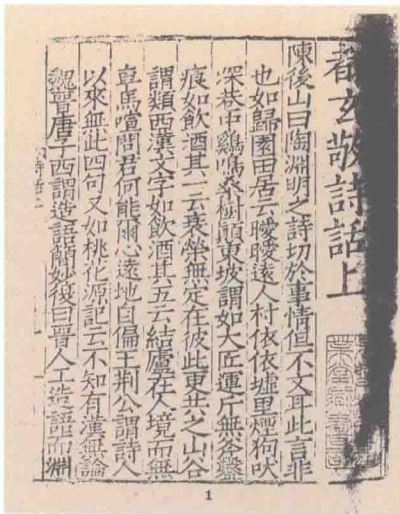 都玄敬詩話上
陳後山曰陶淵明之詩切於事情但不文耳此言非
也如歸園田居云曖曖遠人村依依墟里煙狗吠
深巷中鷄鳴桑樹顛東坡謂如大匠運斤無斧鑿
痕如飲酒其一云衰榮無定在彼此更共之山谷
謂類西漢文字如飲酒其五云結廬在人境而無
車馬喧問君何能爾心遠地自偏王荊公謂詩人
以來無此四句又如桃花源記云不知有漢無論
魏晉唐子西謂造語簡妙復曰晉人工造語而淵
1